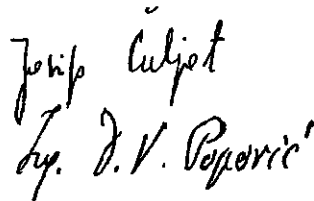 Josip Čuljet
Ing. J. V. Popović